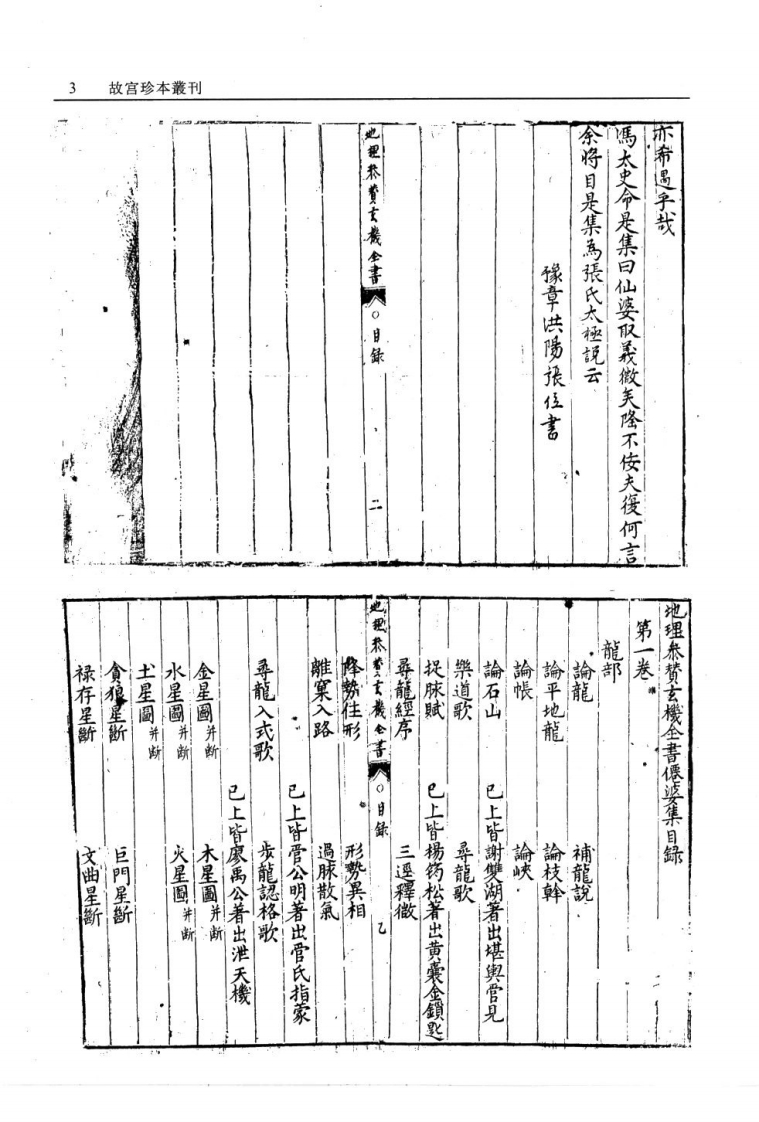 3 故宮珍本叢刊
亦希遇乎哉
馮太史命是集曰仙婆取義微矣隆不佞夫復何言
余將目是集為張氏太極説云
豫章洪陽張位書
地理叅贊玄機全書 ○目録 二
地理叅贊玄機全書僊婆集目録
第一卷
龍部
論龍 補龍說
論平地龍 論枝幹
論帳 論峽
論石山 已上皆謝雙湖著出堪輿管見
樂道歌 尋龍歌
捉脉賦 已上皆楊筠松著出黄囊金鎖匙
尋龍經序 三逕釋微
地理叅贊玄機全書 ○目録 乙
降勢住形 形勢異相
離窠入路 過脉散氣
已上皆管公明著出管氏指蒙
尋龍入式歌 步龍認格歌
已上皆廖禹公著出泄天機
金星圖并斷 木星圖并斷
水星圖并斷 火星圖并斷
土星圖并斷
貪狼星斷 巨門星斷
禄存星斷 文曲星斷